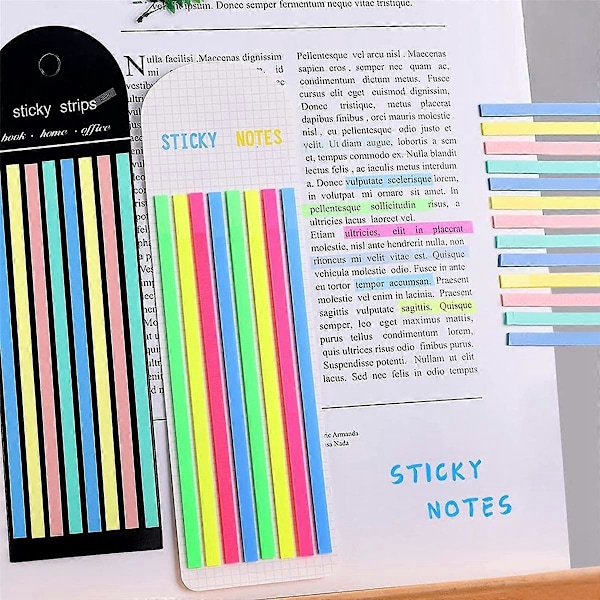 tristique fermentum neque vitae tristique.
sticky strips
book · home · office
STICKY NOTES
Nulla facilisi. Maecenas dignissim
Pellentesque vel arcu nisl. Maecenas
sapien eros, semper nec quam ac,
condimentum dictum metus. Fusce
cursus elit eget euismod dignissim,
Donec tristique, metus placerat
dapibus finibus, orci mauris molestie
nisl, eu pellentesque odio justo et
velit. Ut diam augue, lobortis a sem
et, tempus commodo ex. Nulla blandit
lectus felis, ac iaculis metus interdum
a. Donec vulputate scelerisque lorem,
in volutpat mi ornare sit amet. In
pellentesque sollicitudin risus, a
ultricies lacus laoreet vel.
Etiam ultricies, elit in placerat
molestie, nisl ante hendrerit nulla, non
rhoncus mi velit vitae est. Quisque
vehicula molestie odio. Fusce in ante
eu tortor tempor accumsan. Praesent
molestie vel enim in lacinia. Praesent
sagittis vulputate sagittis. Quisque
semper, leo eget maximus mattis,
purus tellus condimentum lorem,
quis ultrices risus odio finibus purus.
Suspendisse potenti. Nullam ut elit
lacus. Sed nec felis in odio tempus
Armanda
Nada
STICKY
NOTES